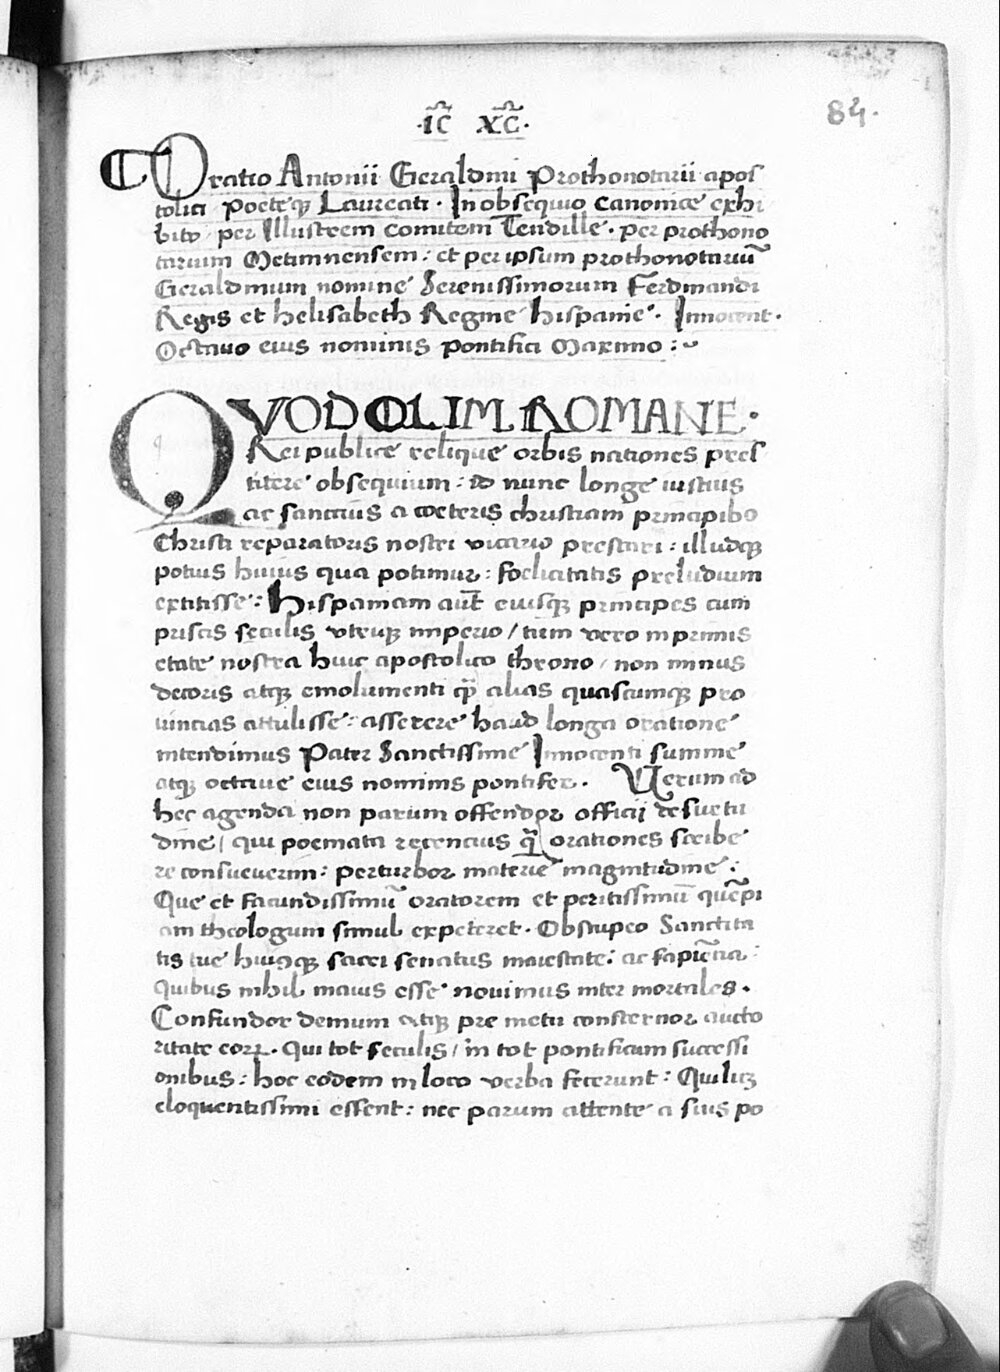 84.
·IC̅ XC̅·
Oratio Antonii Geraldini Prothonotarii apos
tolici Poeteq; Laureati · In obsequio canonice exhi
bito per Illustrem comitem Tendille · per prothono
tarium Metimnensem : et per ipsum prothonotariuȝ
Geraldinum nomine Serenissimorum Ferdinandi
Regis et helisabeth Regine hispanie · Innocent ·
Octavo eius nominis pontifici Maximo :~
QVOD OLIM ROMANE ·
Rei publice relique orbis nationes pres
titere obsequium : id nunc longe iustius
ac sanctius a coeteris christiani principibꝰ
Christi reparatoris nostri vicario prestari : illudq;
potius huius qua potimur : foelicitatis preludium
extitisse : Hispaniam aūt eiusq; principes cum
priscis seculis utriq; imperio / tum vero in primis
etate nostra huic apostolico throno / non minus
decoris atq; emolumenti q̄ alias quascumq; pro
uincias attulisse : asserere haud longa oratione
intendimus Pater Sanctissime Innocenti summe
atq; octave eius nominis pontifex · Verum ad
hec agenda non parum offendor officii desuetu
dine / qui poemata recencius q̄ orationes scribe
re consueuerim : perturbor materie magnitudine :
Que et facundissimū oratorem et peritissimū quēpi
am theologum simul expeteret · Obstupeo Sanctita
tis tue huiusq; sacri senatus maiestate : ac sapiētia :
Quibus nihil maius esse novimus inter mortales ·
Confundor demum atq; pre metu consternor aucto
ritate eoꝝ · Qui tot seculis / in tot pontificum successi
onibus : hoc eodem in loco verba fecerunt : Qui licȝ
eloquentissimi essent : nec parum attente a suis po